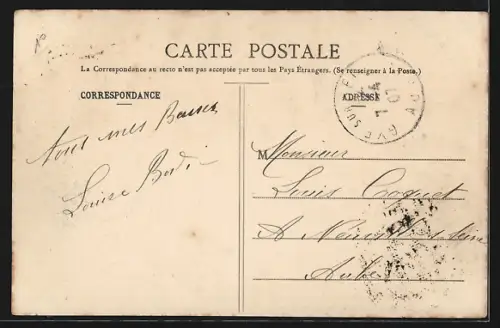 CARTE POSTALE
La Correspondance au recto n'est pas acceptée par tous les Pays Étrangers. (Se renseigner à la Poste.)
CORRESPONDANCE
ADRESSE
Tous mes Baisers
Louise
M Monsieur
Louis Coquet
A
Aube